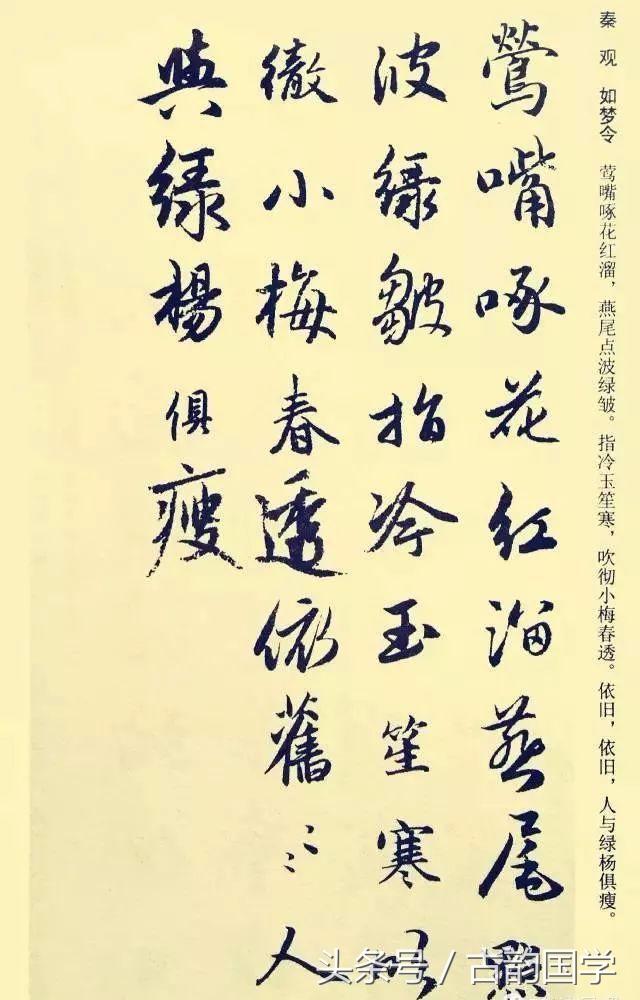 秦观 如梦令 莺嘴啄花红溜，燕尾点波绿皱。指冷玉笙寒，吹彻小梅春透。依旧，依旧，人与绿杨俱瘦。
鶯嘴啄花紅溜燕尾點
波綠皺指冷玉笙寒吹
徹小梅春透依舊〻〻人
與綠楊俱瘦
头条号／古韵国学